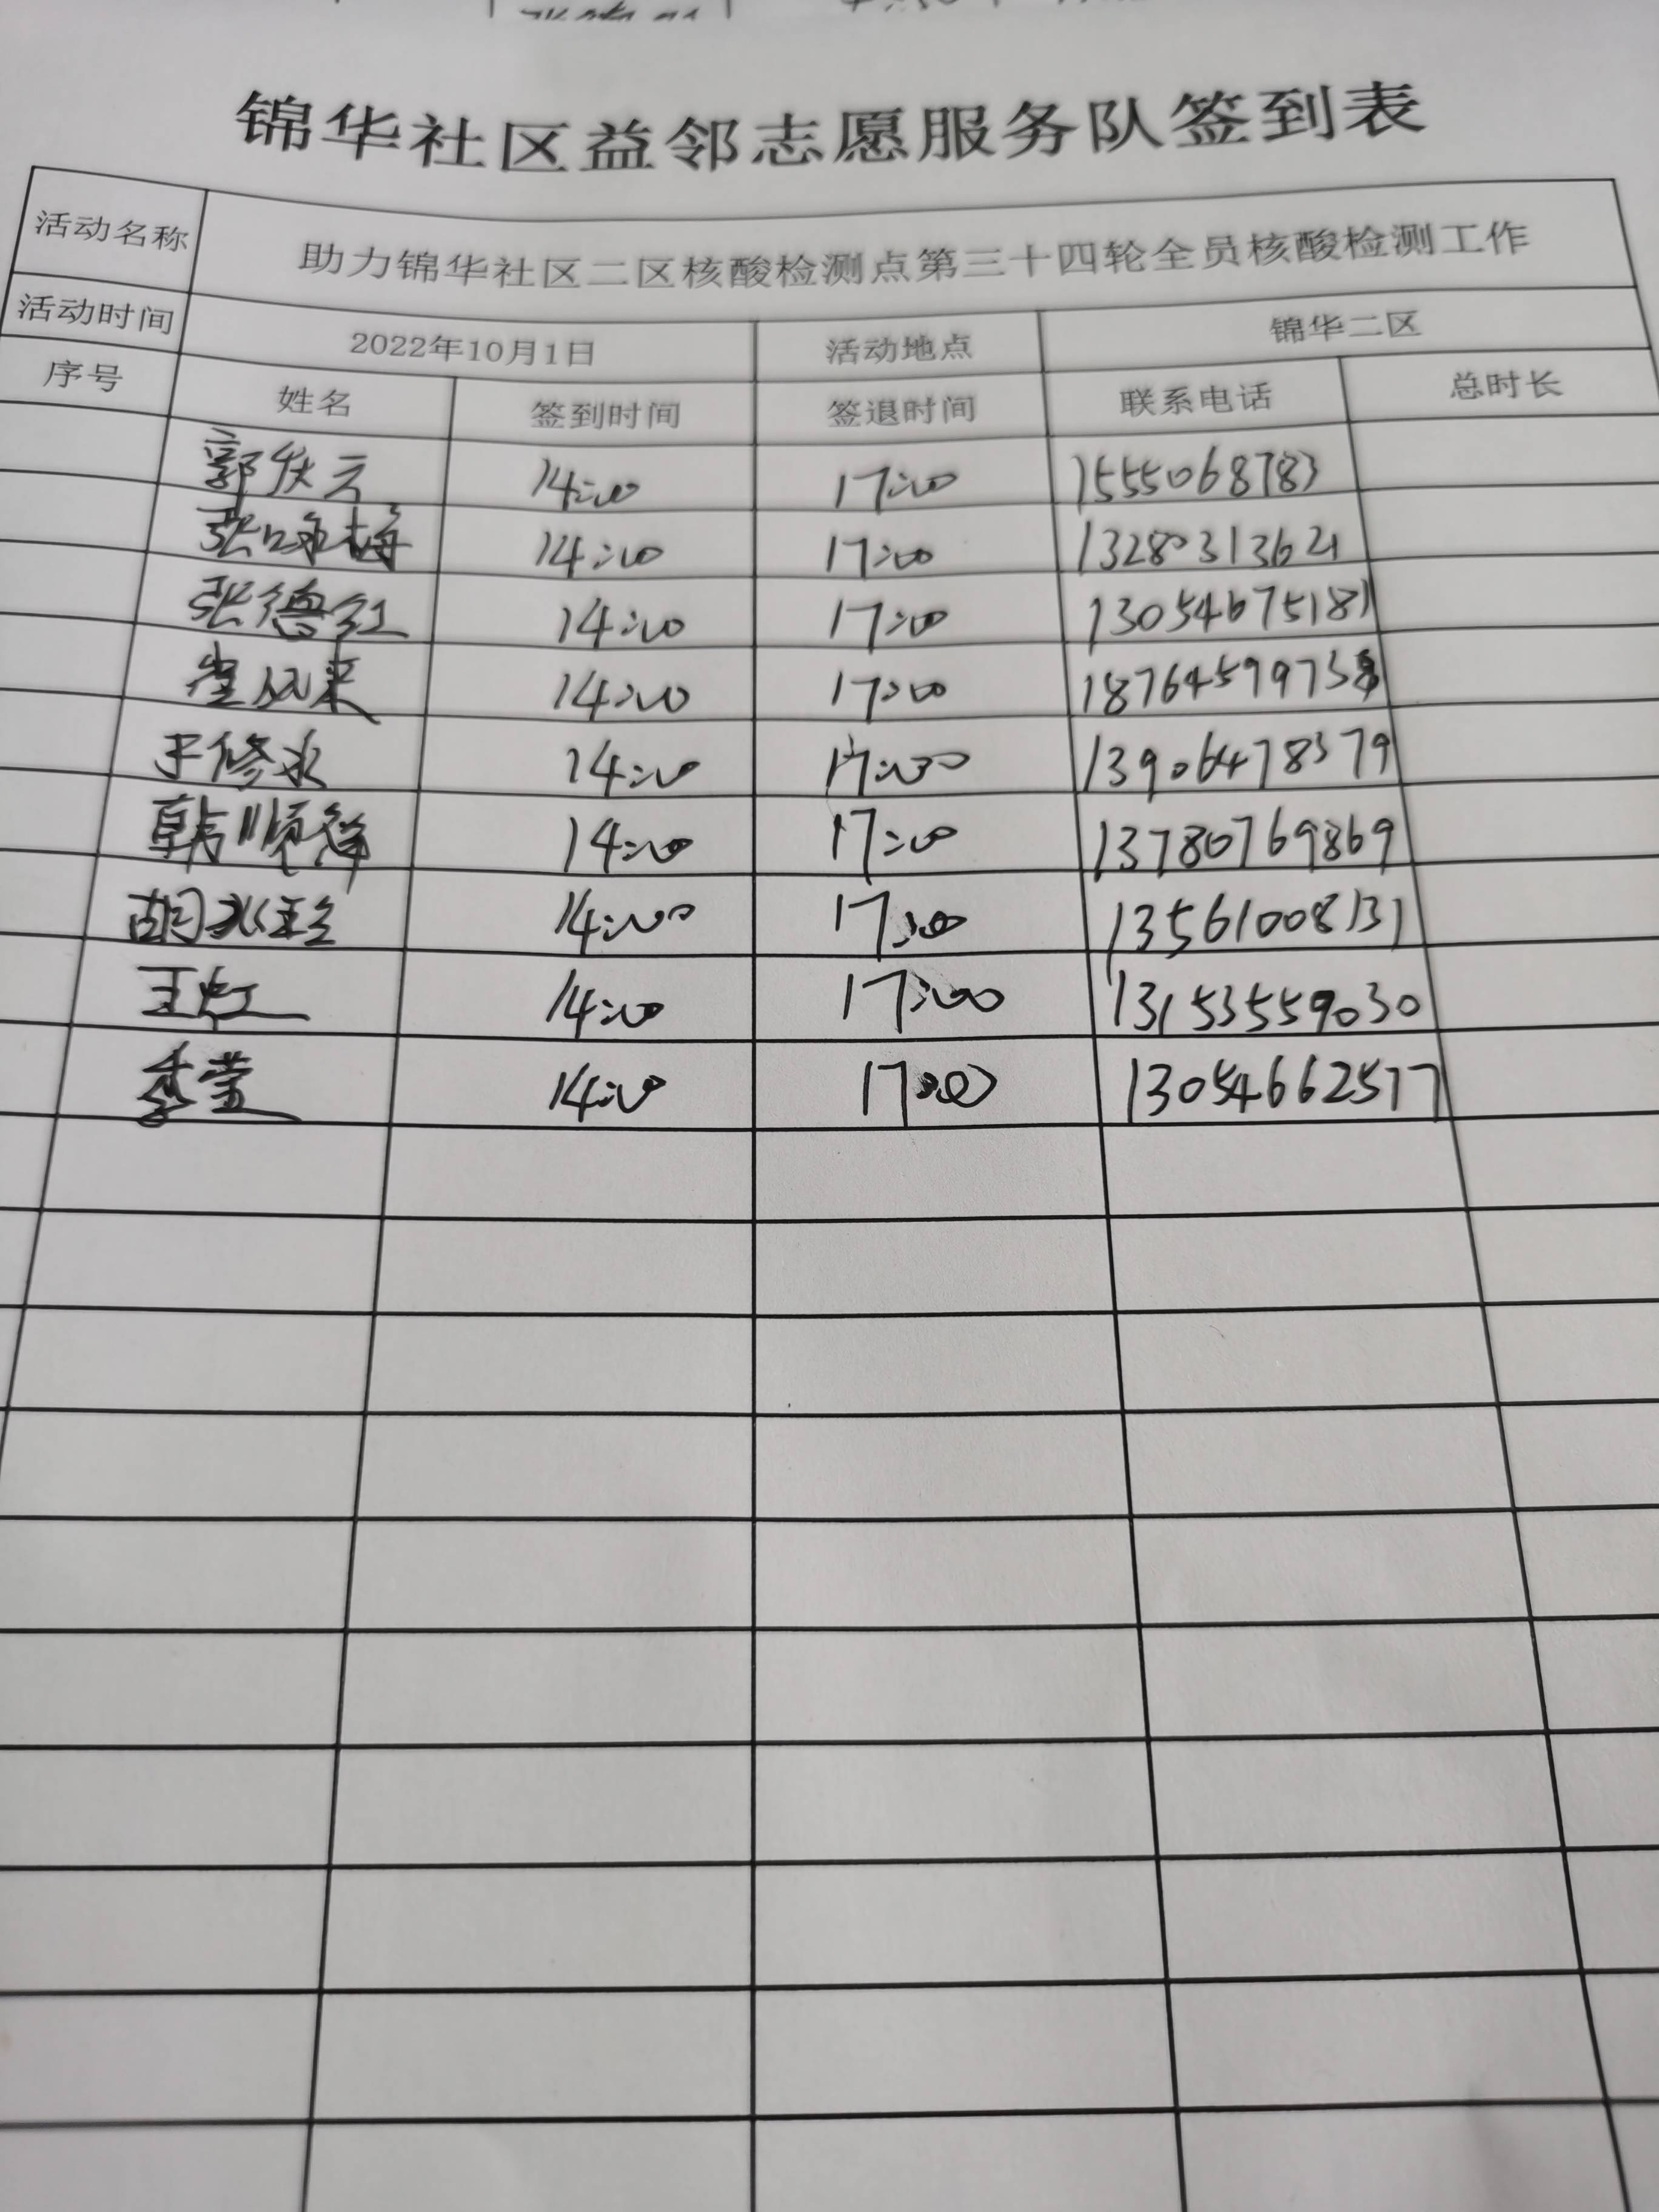 锦华社区益邻志愿服务队签到表
活动名称 助力锦华社区二区核酸检测点第三十四轮全员核酸检测工作
活动时间 2022年10月1日 活动地点 锦华二区
序号 姓名 签到时间 签退时间 联系电话 总时长
郭庆云 14:00 17:00 1555068783
张咏梅 14:00 17:00 13280313621
张德红 14:00 17:00 13054675181
14:00 17:00
于修水 14:00 17:00 13906478379
韩顺锋 14:00 17:00 13780769869
胡 14:00 17:00 13561008131
王虹 14:00 17:00 13153559030
李莹 14:00 17:00 13054662517